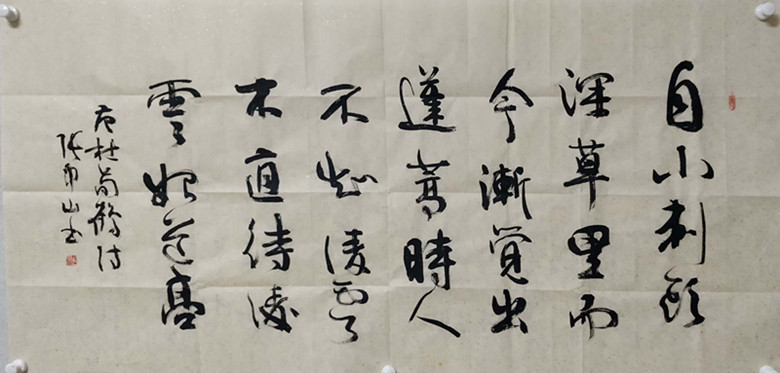 自小刺頭
深草里而
今漸覺出
蓬蒿時人
不知凌雲
木直待凌
雲始道高
唐杜荀鶴詩
張 山书